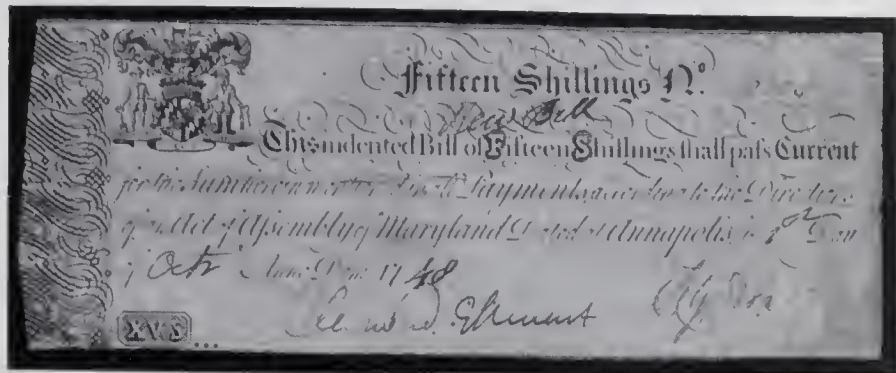 Fifteen Shillings N.º
New Bill
This indented Bill of Fifteen Shillings shall paſs Current
for the Sum herein mentioned in all Payments according to the Directions
of an Act of Aſsembly of Maryland Dated at Annapolis Day
of Octr Anno Dom 1748
XV S